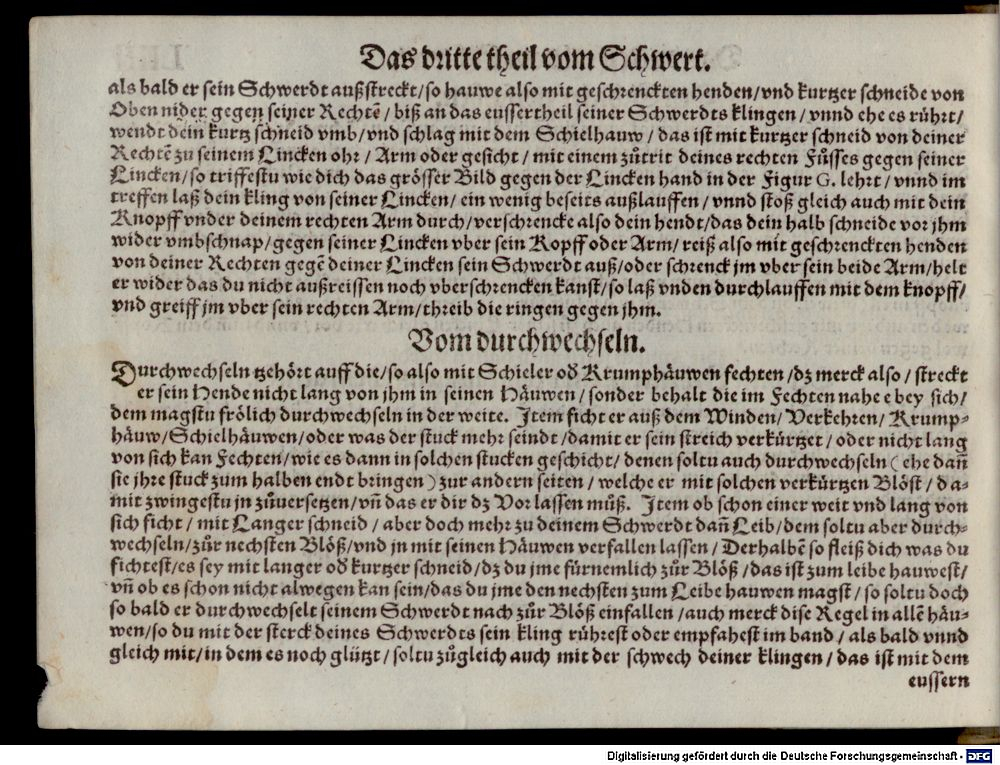 Das dritte theil vom Schwert.
als bald er sein Schwerdt außstreckt/so hauwe also mit geschrenckten henden/vnd kurtzer schneide von
Oben nider gegen seiner Rechtẽ/ biß an das eussertheil seiner Schwerdts klingen/ vnnd ehe es rührt/
wendt dein kurtz schneid vmb/vnd schlag mit dem Schielhauw/ das ist mit kurtzer schneid von deiner
Rechtẽ zu seinem Lincken ohr/ Arm oder gesicht/ mit einem zůtrit deines rechten Fůsses gegen seiner
Lincken/so triffestu wie dich das grösser Bild gegen der Lincken hand in der Figur G. lehrt/ vnnd im
treffen laß dein kling von seiner Lincken/ ein wenig beseits außlauffen/ vnnd stoß gleich auch mit dein
Knopff vnder deinem rechten Arm durch/verschrencke also dein hendt/das dein halb schneide vor jhm
wider vmbschnap/gegen seiner Lincken vber sein Kopff oder Arm/ reiß also mit geschrenckten henden
von deiner Rechten gegẽ deiner Lincken sein Schwerdt auß/oder schrenck jm vber sein beide Arm/helt
er wider das du nicht außreissen noch vberschrencken kanst/so laß vnden durchlauffen mit dem knopff/
vnd greiff jm vber sein rechten Arm/threib die ringen gegen jhm.
Vom durchwechseln.
Durchwechseln tzehört auff die/so also mit Schieler od̃ Krumphäuwen fechten/dz merck also/ streckt
er sein Hende nicht lang von jhm in seinen Häuwen/ sonder behalt die im Fechten nahe e bey sich/
dem magstu frölich durchwechseln in der weite. Item ficht er auß dem Winden/ Verkehren/ Krump⸗
häuw/Schielhäuwen/oder was der stuck mehr seindt/damit er sein streich verkürtzet/ oder nicht lang
von sich kan Fechten/wie es dann in solchen stucken geschicht/ denen soltu auch durchwechseln (ehe dañ
sie jhre stuck zum halben endt bringen) zur andern seiten/ welche er mit solchen verkürtzen Blöst/ da⸗
mit zwingestu jn zůuersetzen/vñ das er dir dz Vor lassen můß. Item ob schon einer weit vnd lang von
sich ficht/ mit Langer schneid/ aber doch mehr zu deinem Schwerdt dañ Leib/dem soltu aber durch⸗
wechseln/zůr nechsten Blöß/vnd jn mit seinen Häuwen verfallen lassen/ Derhalbẽ so fleiß dich was du
fichtest/es sey mit langer od̃ kurtzer schneid/dz du jme fürnemlich zůr Blöß/das ist zum leibe hauwest/
vñ ob es schon nicht alwegen kan sein/das du jme den nechsten zum Leibe hauwen magst/ so soltu doch
so bald er durchwechselt seinem Schwerdt nach zůr Blöß einfallen/auch merck dise Regel in allẽ häu⸗
wen/so du mit der sterck deines Schwerdts sein kling rührest oder empfahest im band/ als bald vnnd
gleich mit/in dem es noch glützt/soltu zůgleich auch mit der schwech deiner klingen/ das ist mit dem
eussern
Digitalisierung gefördert durch die Deutsche Forschungsgemeinschaft - DFG